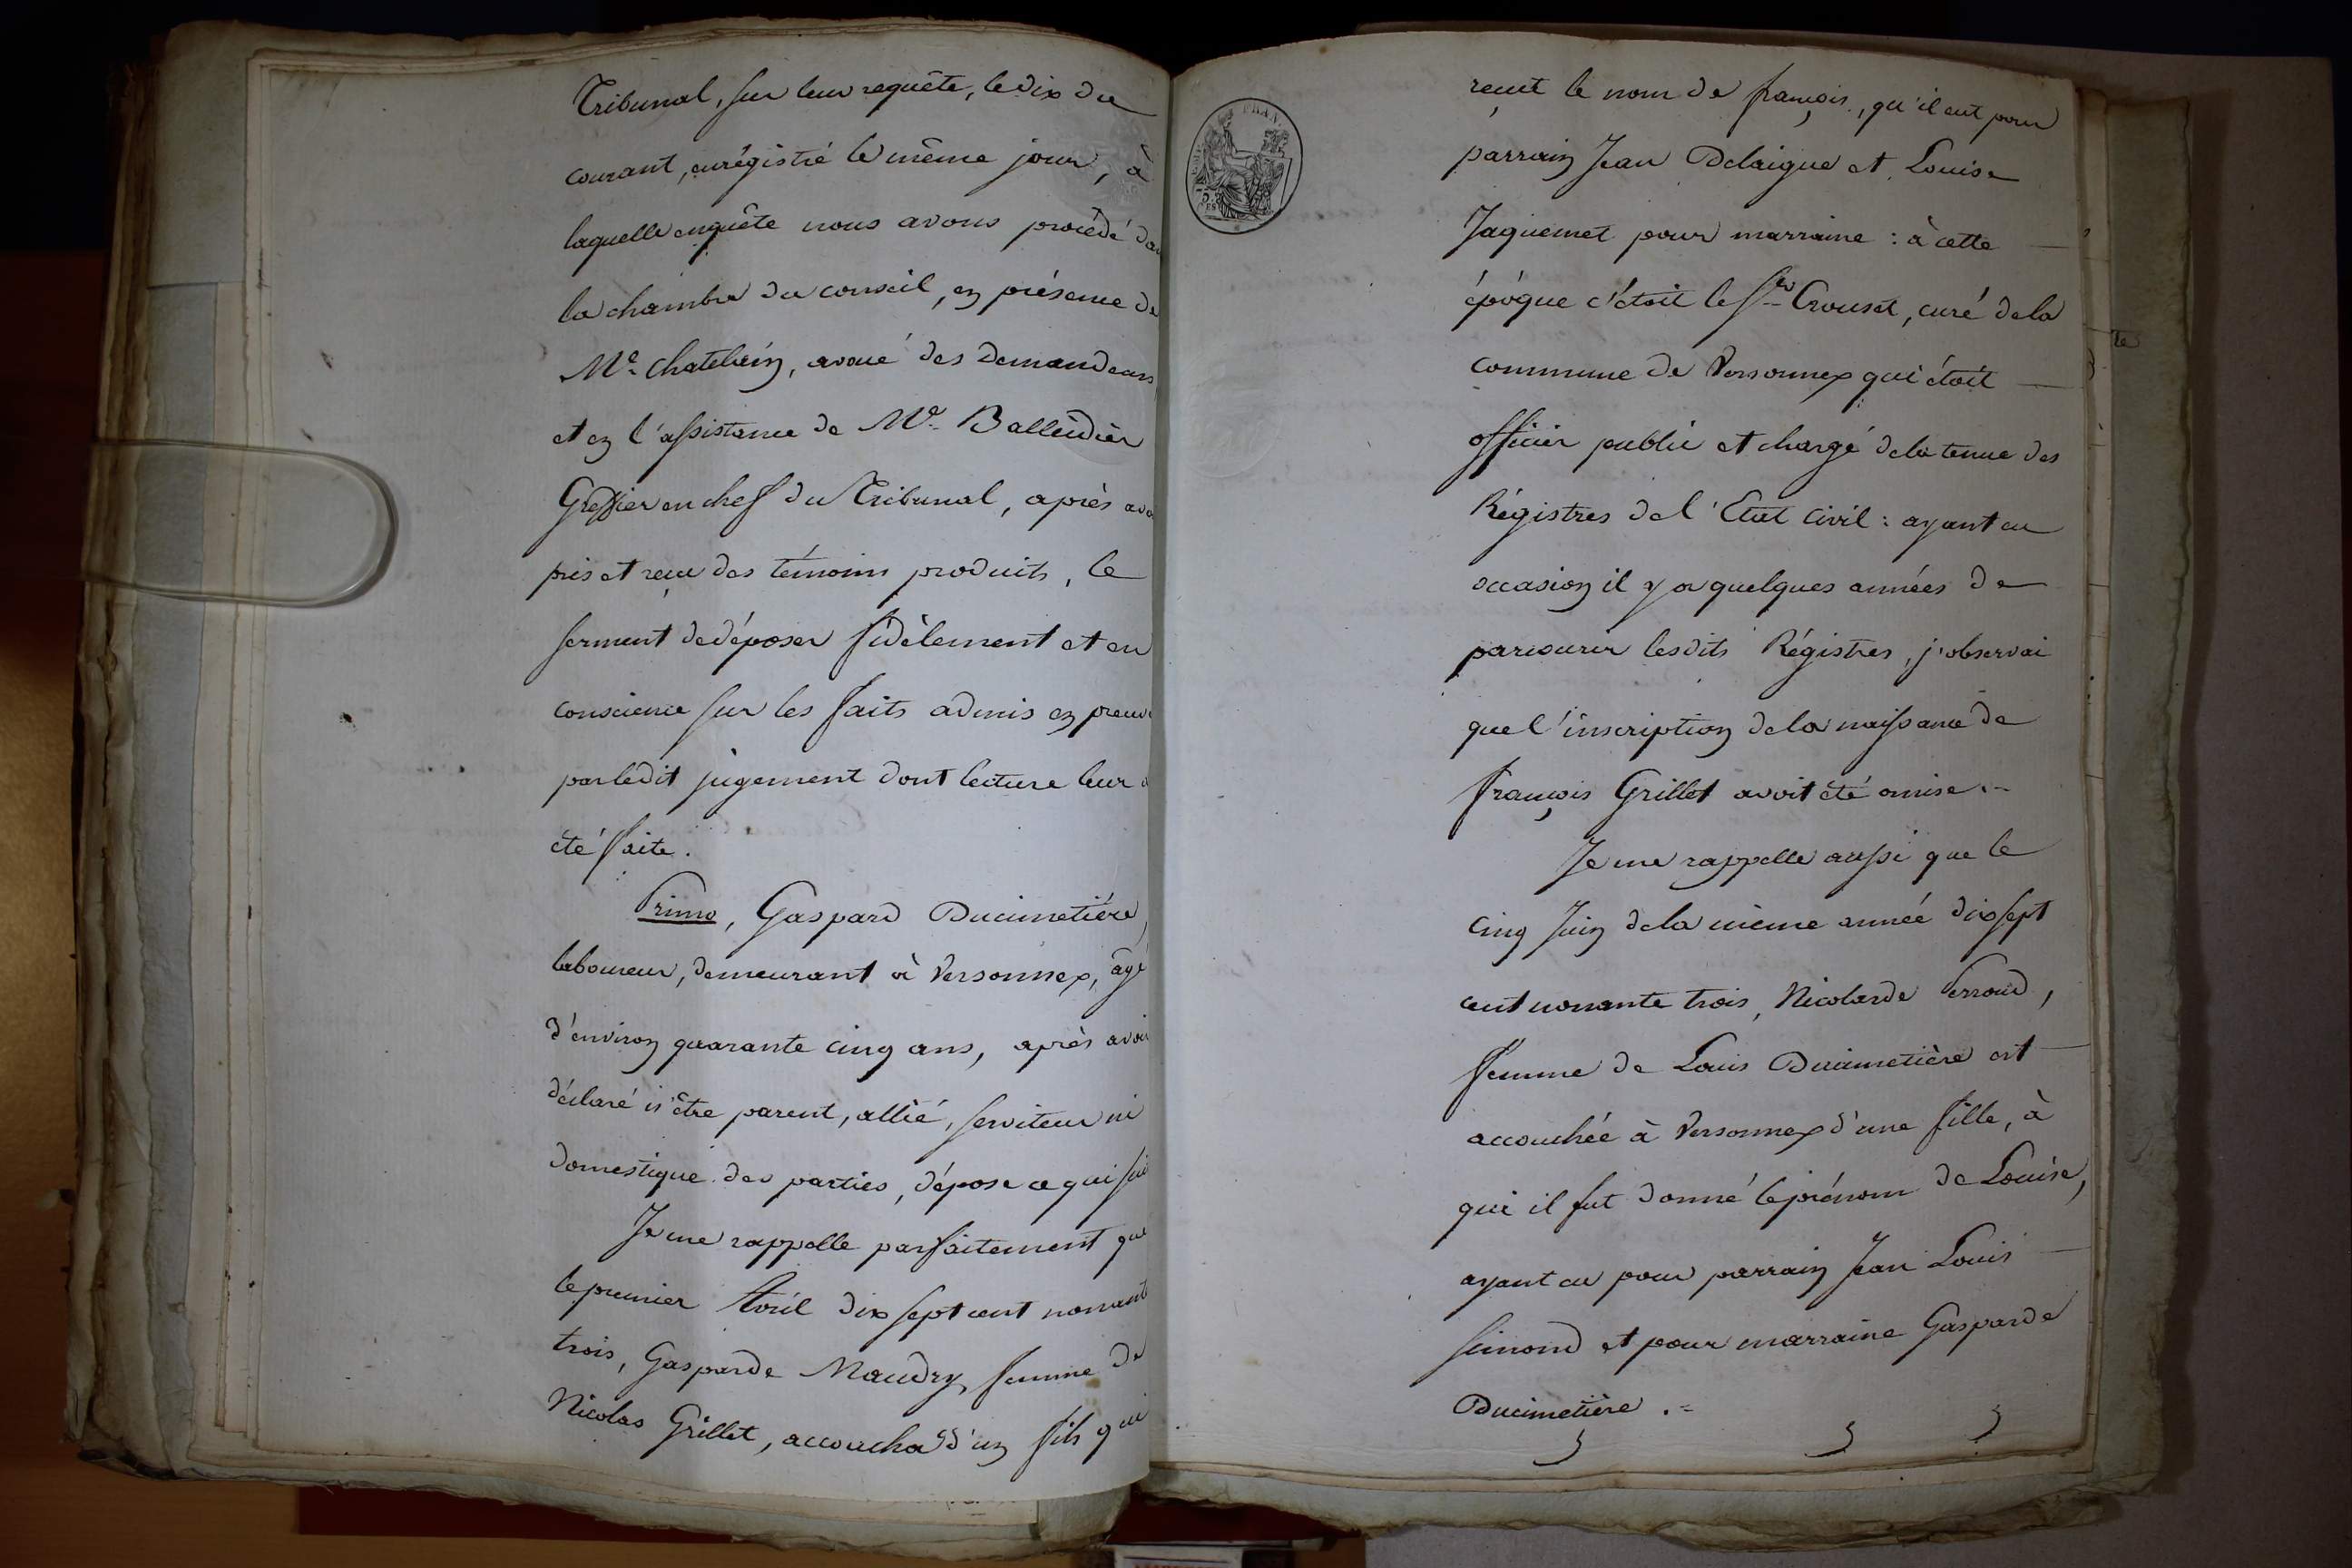 Tribunal, sur leur requête, le dix du
courant, enrégistré le même jour, à
laquelle enquête nous avons procédé da
la chambre du conseil, en présence de
Me. Chatelain, avoué des demandeurs
et en l'assistance de Me. Balleidier
Greffier en chef du Tribunal, après avo
pris et reçu des témoins produits, le
serment de déposer fidèlement et en
conscience sur les faits admis en preuve
par ledit jugement dont lecture leur a
été faite.
Primo, Gaspard Ducimetiére,
laboureur, demeurant à Versonnex, âgé
d'environ quarante cinq ans, après avoir
déclaré n'être parent, allié, serviteur ni
domestique des parties, dépose ce qui sui
Je me rappelle parfaitement que
le premier Avril dix sept cent nonante
trois, Gasparde Maudry, femme de
Nicolas Grillet, accoucha d'un fils qui
FRAN
reçut le nom de françois, qu'il eut pour
parrain Jean Delaigue et Louise
Jaquemet pour marraine : à cette
époque c'étoit le Sr Crouset, curé de la
commune de Versonnex qui étoit
officier public et chargé de la tenue des
Régistres de l'Etat civil : ayant eu
occasion il y a quelques années de
parcourir lesdits Régistres, j'observai
que l'inscription de la naissance de
françois Grillet avoit été omise.
Je me rappelle aussi que le
cinq Juin de la même année dix sept
cent nonante trois, Nicolarde Perroud,
femme de Louis Ducimetière est
accouchée à Versonnex d'une fille, à
qui il fut donné le prénom de Louise,
ayant eu pour parrain Jean Louis
simond et pour marraine Gasparde
Ducimetière.